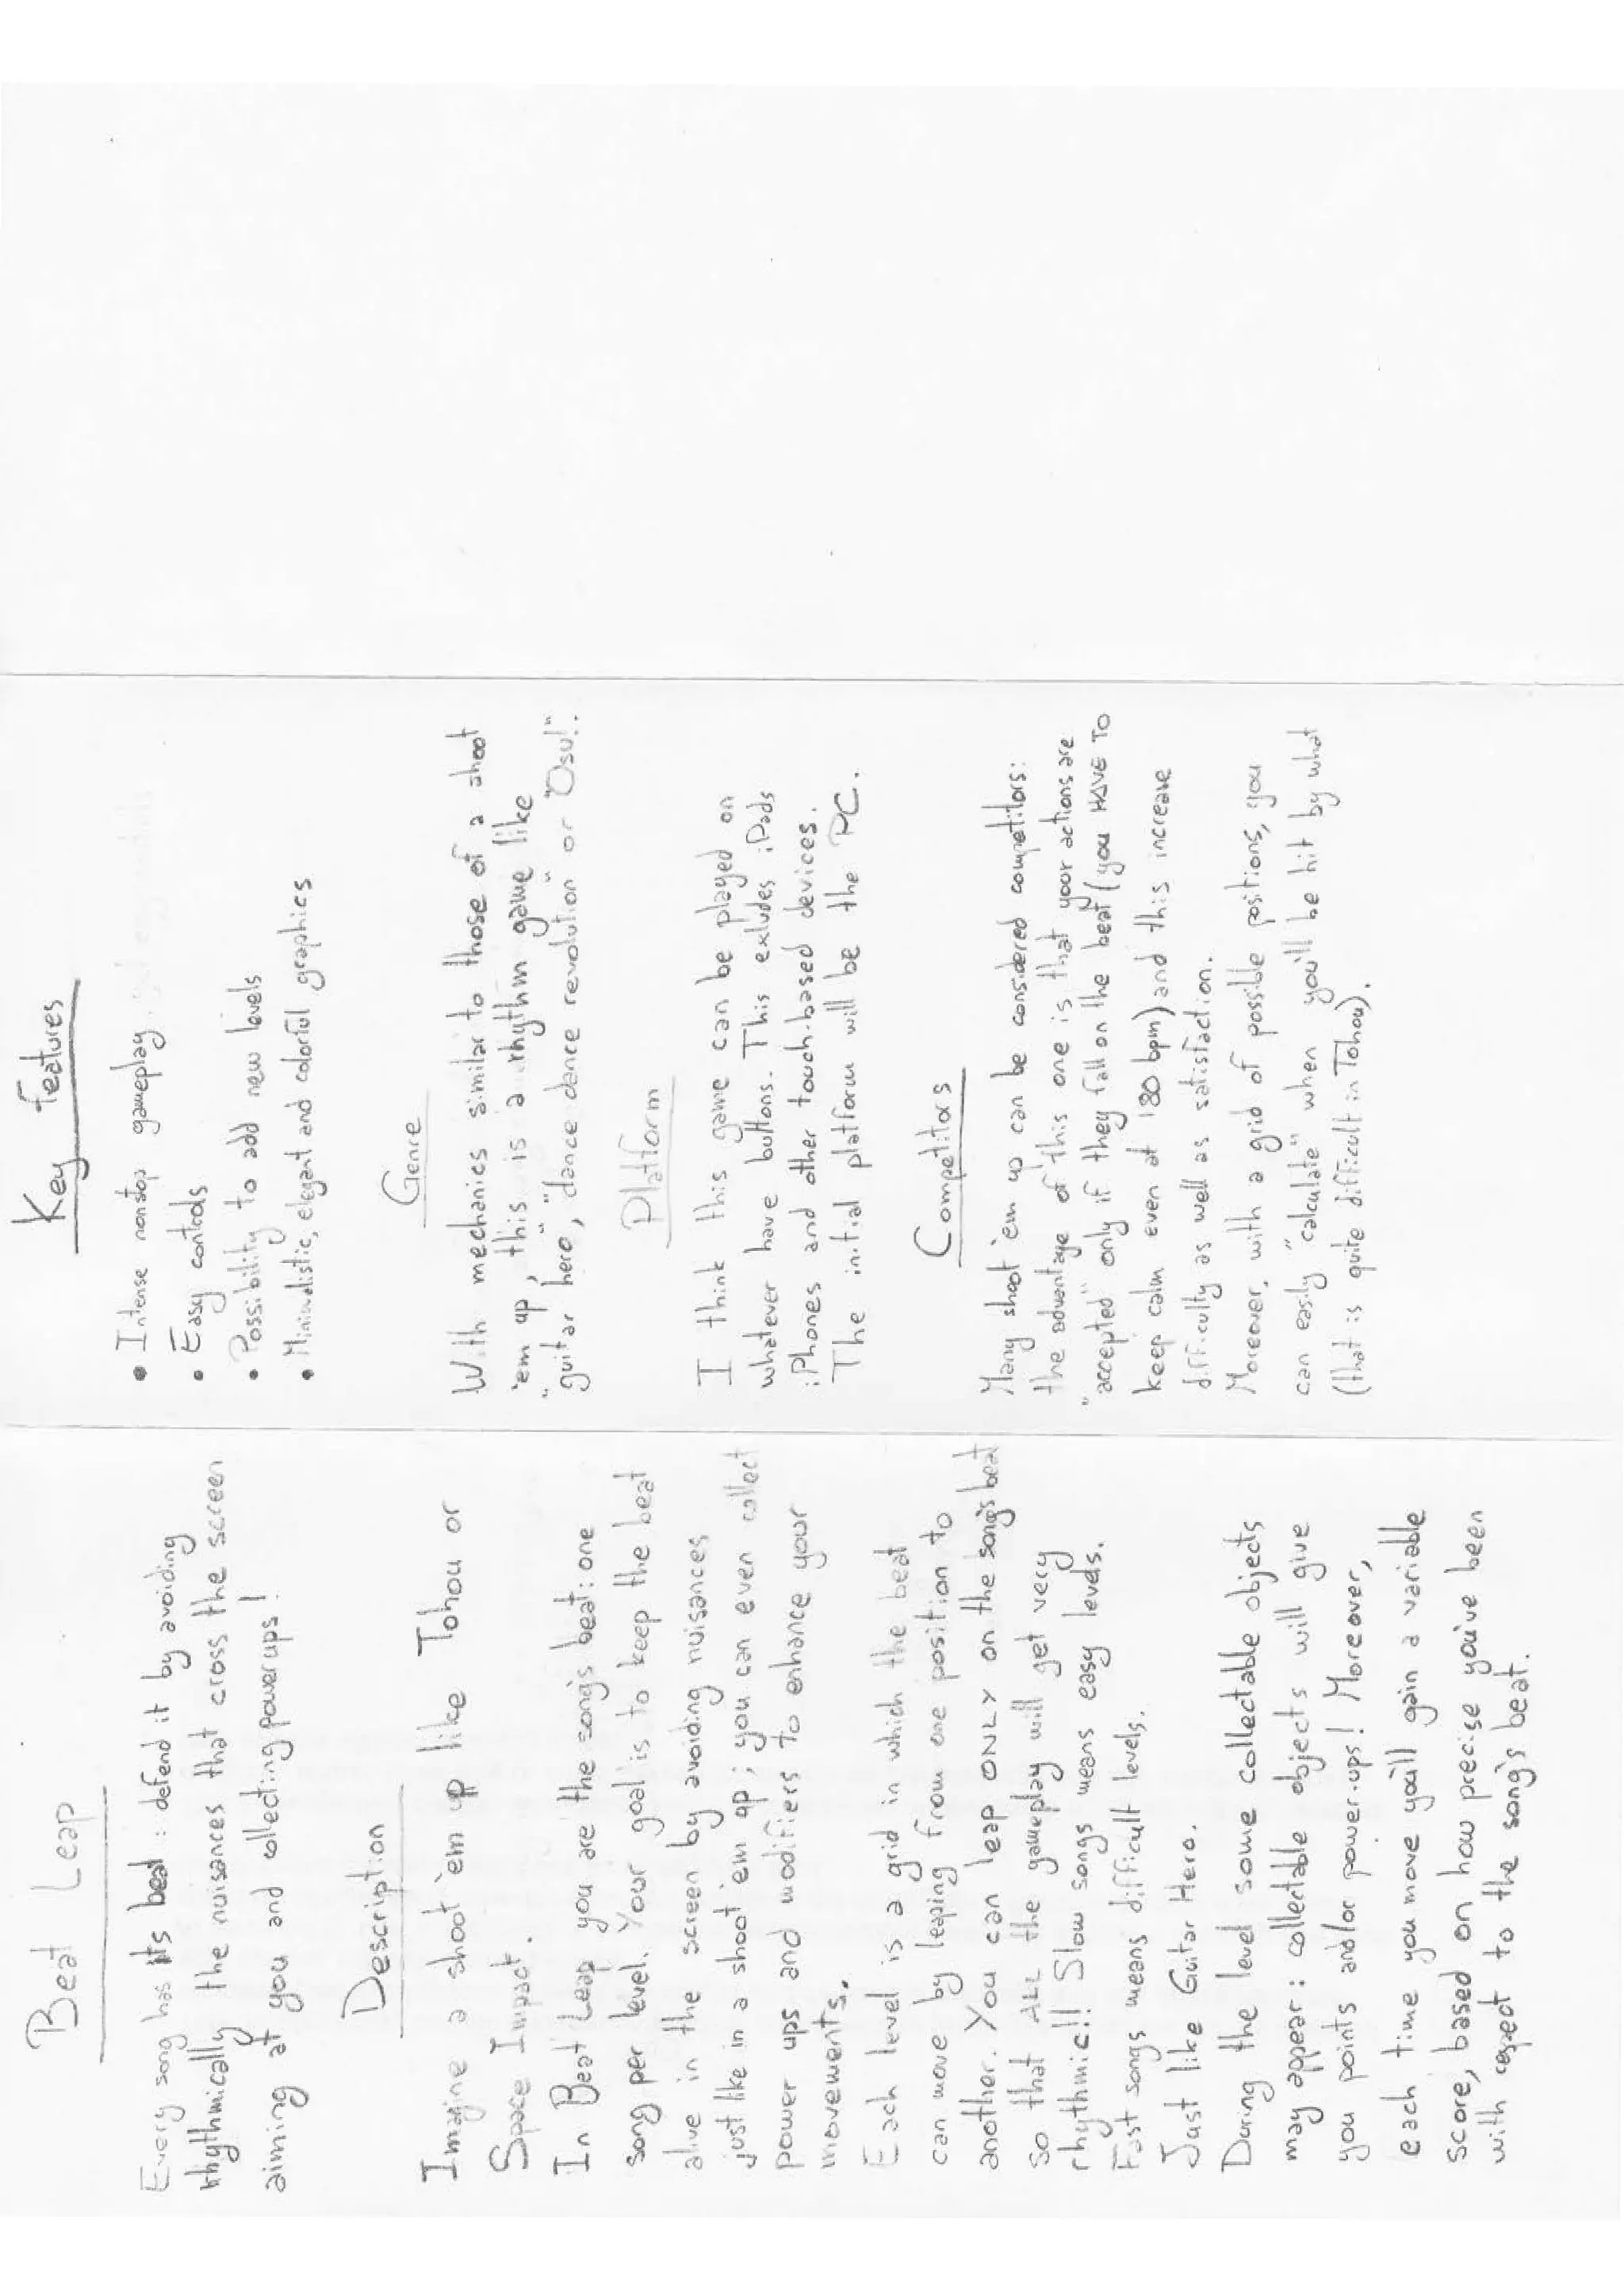 Beat Leap
Every song has its beat : defend it by avoiding
rhythmically the nuisances that cross the screen
aiming at you and collecting powerups!
Description
Imagine a shoot 'em up like Tohou or
Space Impact.
In Beat Leap you are the song's beat: one
song per level. Your goal is to keep the beat
alive in the screen by avoiding nuisances
just like in a shoot 'em up; you can even collect
power ups and modifiers to enhance your
movements.
Each level is a grid in which the beat
can move by leaping from one position to
another. You can leap ONLY on the song's beat
so that ALL the gameplay will get very
rhythmic!! Slow songs means easy levels.
Fast songs means difficult levels.
Just like Guitar Hero.
During the level some collectable objects
may appear : collectable objects will give
you points and/or power-ups! Moreover,
each time you move you'll gain a variable
score, based on how precise you've been
with respect to the song's beat.
Key features
• Intense nonstop gameplay
• Easy controls
• Possibility to add new levels
• Minimalistic, elegant and colorful graphics
Genre
With mechanics similar to those of a shoot
'em up, this is a rhythm game like
"guitar hero", "dance dance revolution" or "Osu!".
Platform
I think this game can be played on
whatever have buttons. This exludes iPads
iPhones and other touch-based devices.
The initial platform will be the PC.
Competitors
Many shoot 'em up can be considered competitors:
the advantage of this one is that your actions are
"accepted" only if they fall on the beat (you HAVE TO
keep calm even at 180 bpm) and this increase
difficulty as well as satisfaction.
Moreover, with a grid of possible positions, you
can easily "calculate" when you'll be hit by what
(that is quite difficult in Tohou).